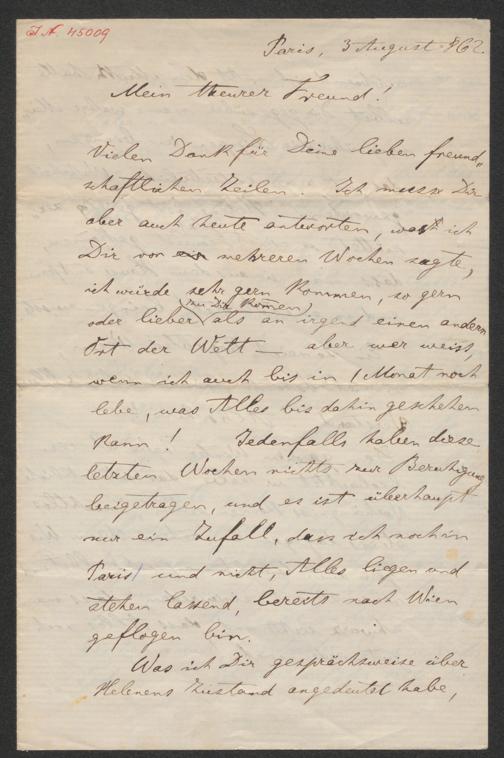 I.N. 45009
Paris, 3 August 862.
Mein theurer Freund!
Vielen Dank für Deine lieben freund„
schaftlichen Zeilen. Ich muss Dir
aber auch heute antworten, was ich
Dir vor mehreren Wochen sagte,
ich würde sehr gern kommen, so gern
(zu Dir kommen)
oder lieber als an irgend einen andern
Ort der Welt — aber wer weiss,
wenn ich auch bis in 1 Monat noch
lebe, was Alles bis dahin geschehen
kann! Jedenfalls haben diese
letzten Wochen nichts zur Beruhigung
beigetragen, und es ist überhaupt
nur ein Zufall, dass ich noch in
Paris und nicht, Alles liegen und
stehen lassend, bereits nach Wien
geflogen bin.
Was ich Dir gesprächsweise über
Helenens Zustand angedeutet habe,